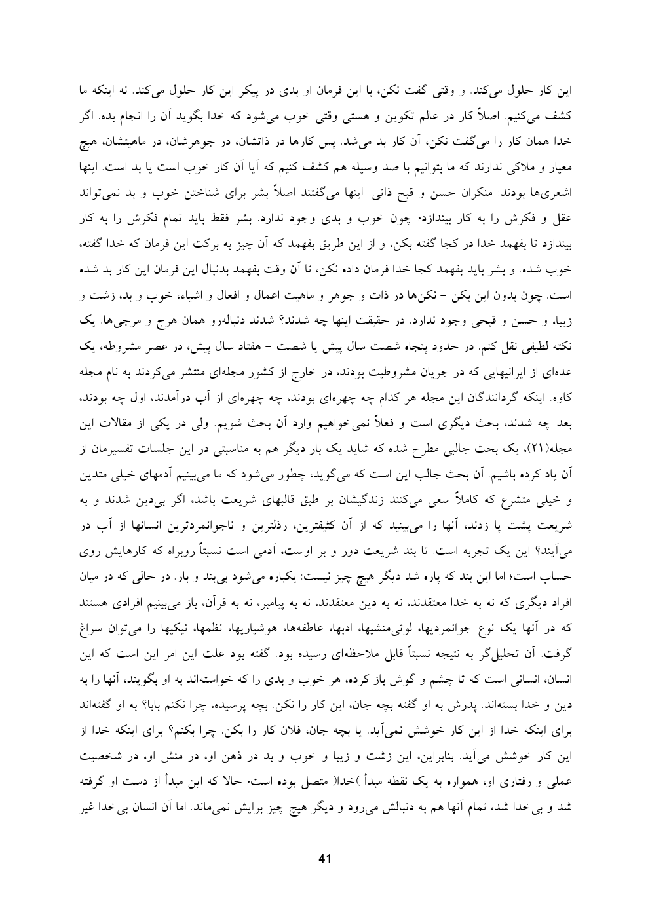 این کار حلول می‌کند. و وقتی گفت نکن، با این فرمان او بدی در پیکر این کار حلول می‌کند. نه اینکه ما
کشف می‌کنیم. اصلاً کار در عالم تکوین و هستی وقتی خوب می‌شود که خدا بگوید آن را انجام بده. اگر
خدا همان کار را می‌گفت نکن، آن کار بد می‌شد. پس کارها در ذاتشان، در جوهرشان، در ماهیتشان، هیچ
معیار و ملاکی ندارند که ما بتوانیم با صد وسیله هم کشف کنیم که آیا آن کار خوب است یا بد است. اینها
اشعری‌ها بودند. منکران حسن و قبح ذاتی. اینها می‌گفتند اصلاً بشر برای شناختن خوب و بد نمی‌تواند
عقل و فکرش را به کار بیندازد؛ چون خوب و بدی وجود ندارد. بشر فقط باید تمام فکرش را به کار
بیندازد تا بفهمد خدا در کجا گفته بکن، و از این طریق بفهمد که آن چیز به برکت این فرمان که خدا گفته،
خوب شده. و بشر باید بفهمد کجا خدا فرمان داده نکن، تا آن وقت بفهمد بدنبال این فرمان این کار بد شده
است. چون بدون این بکن - نکن‌ها در ذات و جوهر و ماهیت اعمال و افعال و اشیاء، خوب و بد، زشت و
زیبا، و حسن و قبحی وجود ندارد. در حقیقت اینها چه شدند؟ شدند دنباله‌رو همان هرج و مرجی‌ها. یک
نکته لطیفی نقل کنم. در حدود پنجاه شصت سال پیش یا شصت - هفتاد سال پیش، در عصر مشروطه، یک
عده‌ای از ایرانیهایی که در جریان مشروطیت بودند، در خارج از کشور مجله‌ای منتشر می‌کردند به نام مجله
کاوه. اینکه گردانندگان این مجله هر کدام چه چهره‌ای بودند، چه چهره‌ای از آب درآمدند، اول چه بودند،
بعد چه شدند، بحث دیگری است و فعلاً نمی‌خواهیم وارد آن بحث شویم. ولی در یکی از مقالات این
مجله(۲۱)، یک بحث جالبی مطرح شده که شاید یک بار دیگر هم به مناسبتی در این جلسات تفسیرمان از
آن یاد کرده باشیم. آن بحث جالب این است که می‌گوید، چطور می‌شود که ما می‌بینیم آدمهای خیلی متدین
و خیلی متشرع که کاملاً سعی می‌کنند زندگیشان بر طبق قالبهای شریعت باشد، اگر بی‌دین شدند و به
شریعت پشت پا زدند، آنها را می‌بینید که از آن کثیفترین، رذلترین و ناجوانمردترین انسانها از آب در
می‌آیند؟ این یک تجربه است. تا بند شریعت دور و بر اوست، آدمی است نسبتاً روبراه که کارهایش روی
حساب است؛ اما این بند که پاره شد دیگر هیچ چیز نیست: یکباره می‌شود بی‌بند و بار. در حالی که در میان
افراد دیگری که نه به خدا معتقدند، نه به دین معتقدند، نه به پیامبر، نه به قرآن، باز می‌بینیم افرادی هستند
که در آنها یک نوع جوانمردیها، لوتی‌منشیها، ادبها، عاطفه‌ها، هوشیاریها، نظمها، نیکیها را می‌توان سراغ
گرفت. آن تحلیل‌گر به نتیجه نسبتاً قابل ملاحظه‌ای رسیده بود. گفته بود علت این امر این است که این
انسان، انسانی است که تا چشم و گوش باز کرده، هر خوب و بدی را که خواسته‌اند به او بگویند، آنها را به
دین و خدا بسته‌اند. پدرش به او گفته بچه جان، این کار را نکن. بچه پرسیده، چرا نکنم بابا؟ به او گفته‌اند
برای اینکه خدا از این کار خوشش نمی‌آید. یا بچه جان، فلان کار را بکن. چرا بکنم؟ برای اینکه خدا از
این کار خوشش می‌آید. بنابراین، این زشت و زیبا و خوب و بد در ذهن او، در منش او، در شخصیت
عملی و رفتاری او، همواره به یک نقطه مبدأ )خدا( متصل بوده است؛ حالا که این مبدأ از دست او گرفته
شد و بی‌خدا شد، تمام آنها هم به دنبالش می‌رود و دیگر هیچ چیز برایش نمی‌ماند. اما آن انسان بی‌خدا غیر
41